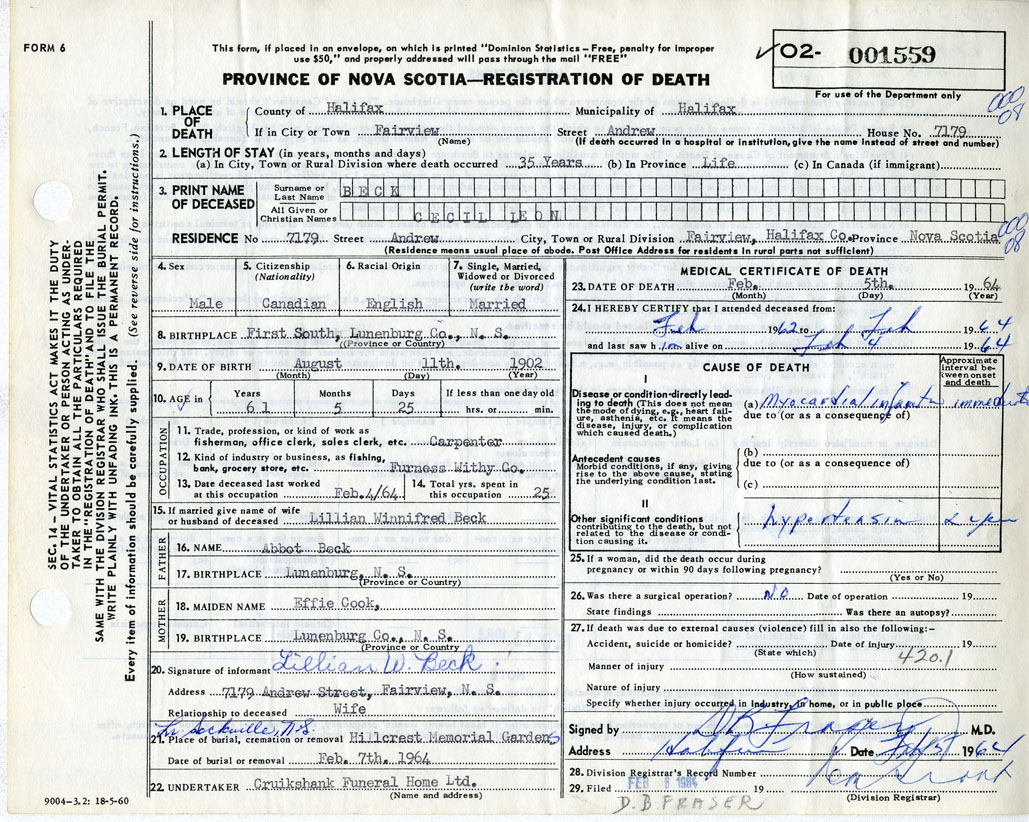 FORM 6
This form, if placed in an envelope, on which is printed "Dominion Statistics – Free, penalty for improper
use $50," and properly addressed will pass through the mail "FREE"
PROVINCE OF NOVA SCOTIA—REGISTRATION OF DEATH
✓02- 001559
For use of the Department only
000
08
1. PLACE OF DEATH
County of Halifax Municipality of Halifax
If in City or Town Fairview Street Andrew House No. 7179
(Name) (If death occurred in a hospital or institution, give the name instead of street and number)
2. LENGTH OF STAY (in years, months and days)
(a) In City, Town or Rural Division where death occurred 35 Years (b) In Province Life (c) In Canada (if immigrant)
3. PRINT NAME OF DECEASED
Surname or Last Name BECK
All Given or Christian Names CECIL LEON
000
08
RESIDENCE No 7179 Street Andrew City, Town or Rural Division Fairview, Halifax Co. Province Nova Scotia
(Residence means usual place of abode. Post Office Address for residents in rural parts not sufficient)
4. Sex
Male
5. Citizenship (Nationality)
Canadian
6. Racial Origin
English
7. Single, Married, Widowed or Divorced (write the word)
Married
8. BIRTHPLACE First South, Lunenburg Co., N. S.
(Province or Country)
9. DATE OF BIRTH August 11th. 1902
(Month) (Day) (Year)
10. AGE in Years Months Days If less than one day old
61 5 25 hrs. or min.
OCCUPATION
11. Trade, profession, or kind of work as
fisherman, office clerk, sales clerk, etc. Carpenter
12. Kind of industry or business, as fishing,
bank, grocery store, etc. Furness Withy Co.
13. Date deceased last worked
at this occupation Feb.4/64
14. Total yrs. spent in
this occupation 25
15. If married give name of wife
or husband of deceased Lillian Winnifred Beck
FATHER
16. NAME Abbot Beck
17. BIRTHPLACE Lunenburg, N. S.
(Province or Country)
MOTHER
18. MAIDEN NAME Effie Cook,
19. BIRTHPLACE Lunenburg Co., N. S.
(Province or Country
20. Signature of informant Lillian W. Beck.
Address 7179 Andrew Street, Fairview, N. S.
Relationship to deceased Wife
Lr. Sackville, N.S.
21. Place of burial, cremation or removal Hillcrest Memorial Gardens
Date of burial or removal Feb. 7th. 1964
22. UNDERTAKER Cruikshank Funeral Home Ltd.
(Name and address)
9004–3.2: 18-5-60
MEDICAL CERTIFICATE OF DEATH
23. DATE OF DEATH Feb. 5th. 1964
(Month) (Day) (Year)
24. I HEREBY CERTIFY that I attended deceased from:
Feb 1962 to Feb 1964
and last saw him alive on Feb 4 1964
CAUSE OF DEATH
Approximate interval between onset and death
I
Disease or condition directly leading to death (This does not mean the mode of dying, e.g., heart failure, asthenia, etc. It means the disease, injury, or complication which caused death.)
(a) Myocardial immediate
due to (or as a consequence of)
Antecedent causes
Morbid conditions, if any, giving rise to the above cause, stating the underlying condition last.
(b)
due to (or as a consequence of)
(c)
II
Other significant conditions contributing to the death, but not related to the disease or condition causing it.
hypertension 2 yrs
25. If a woman, did the death occur during
pregnancy or within 90 days following pregnancy?
(Yes or No)
26. Was there a surgical operation? NO Date of operation 19
State findings Was there an autopsy?
27. If death was due to external causes (violence) fill in also the following:–
Accident, suicide or homicide? Date of injury 19
(State which)
420.1
Manner of injury
(How sustained)
Nature of injury
Specify whether injury occurred in Industry, in home, or in public place
Signed by D B Fraser M.D.
Address Halifax Date Feb 5 1964
28. Division Registrar's Record Number
29. Filed FEB 6 1964 19
(Division Registrar)
D. B FRASER
SEC. 14 – VITAL STATISTICS ACT MAKES IT THE DUTY
OF THE UNDERTAKER OR PERSON ACTING AS UNDER-
TAKER TO OBTAIN ALL THE PARTICULARS REQUIRED
IN THE "REGISTRATION OF DEATH" AND TO FILE THE
SAME WITH THE DIVISION REGISTRAR WHO SHALL ISSUE THE BURIAL PERMIT.
WRITE PLAINLY WITH UNFADING INK. THIS IS A PERMANENT RECORD.
Every item of information should be carefully supplied. (See reverse side for instructions.)